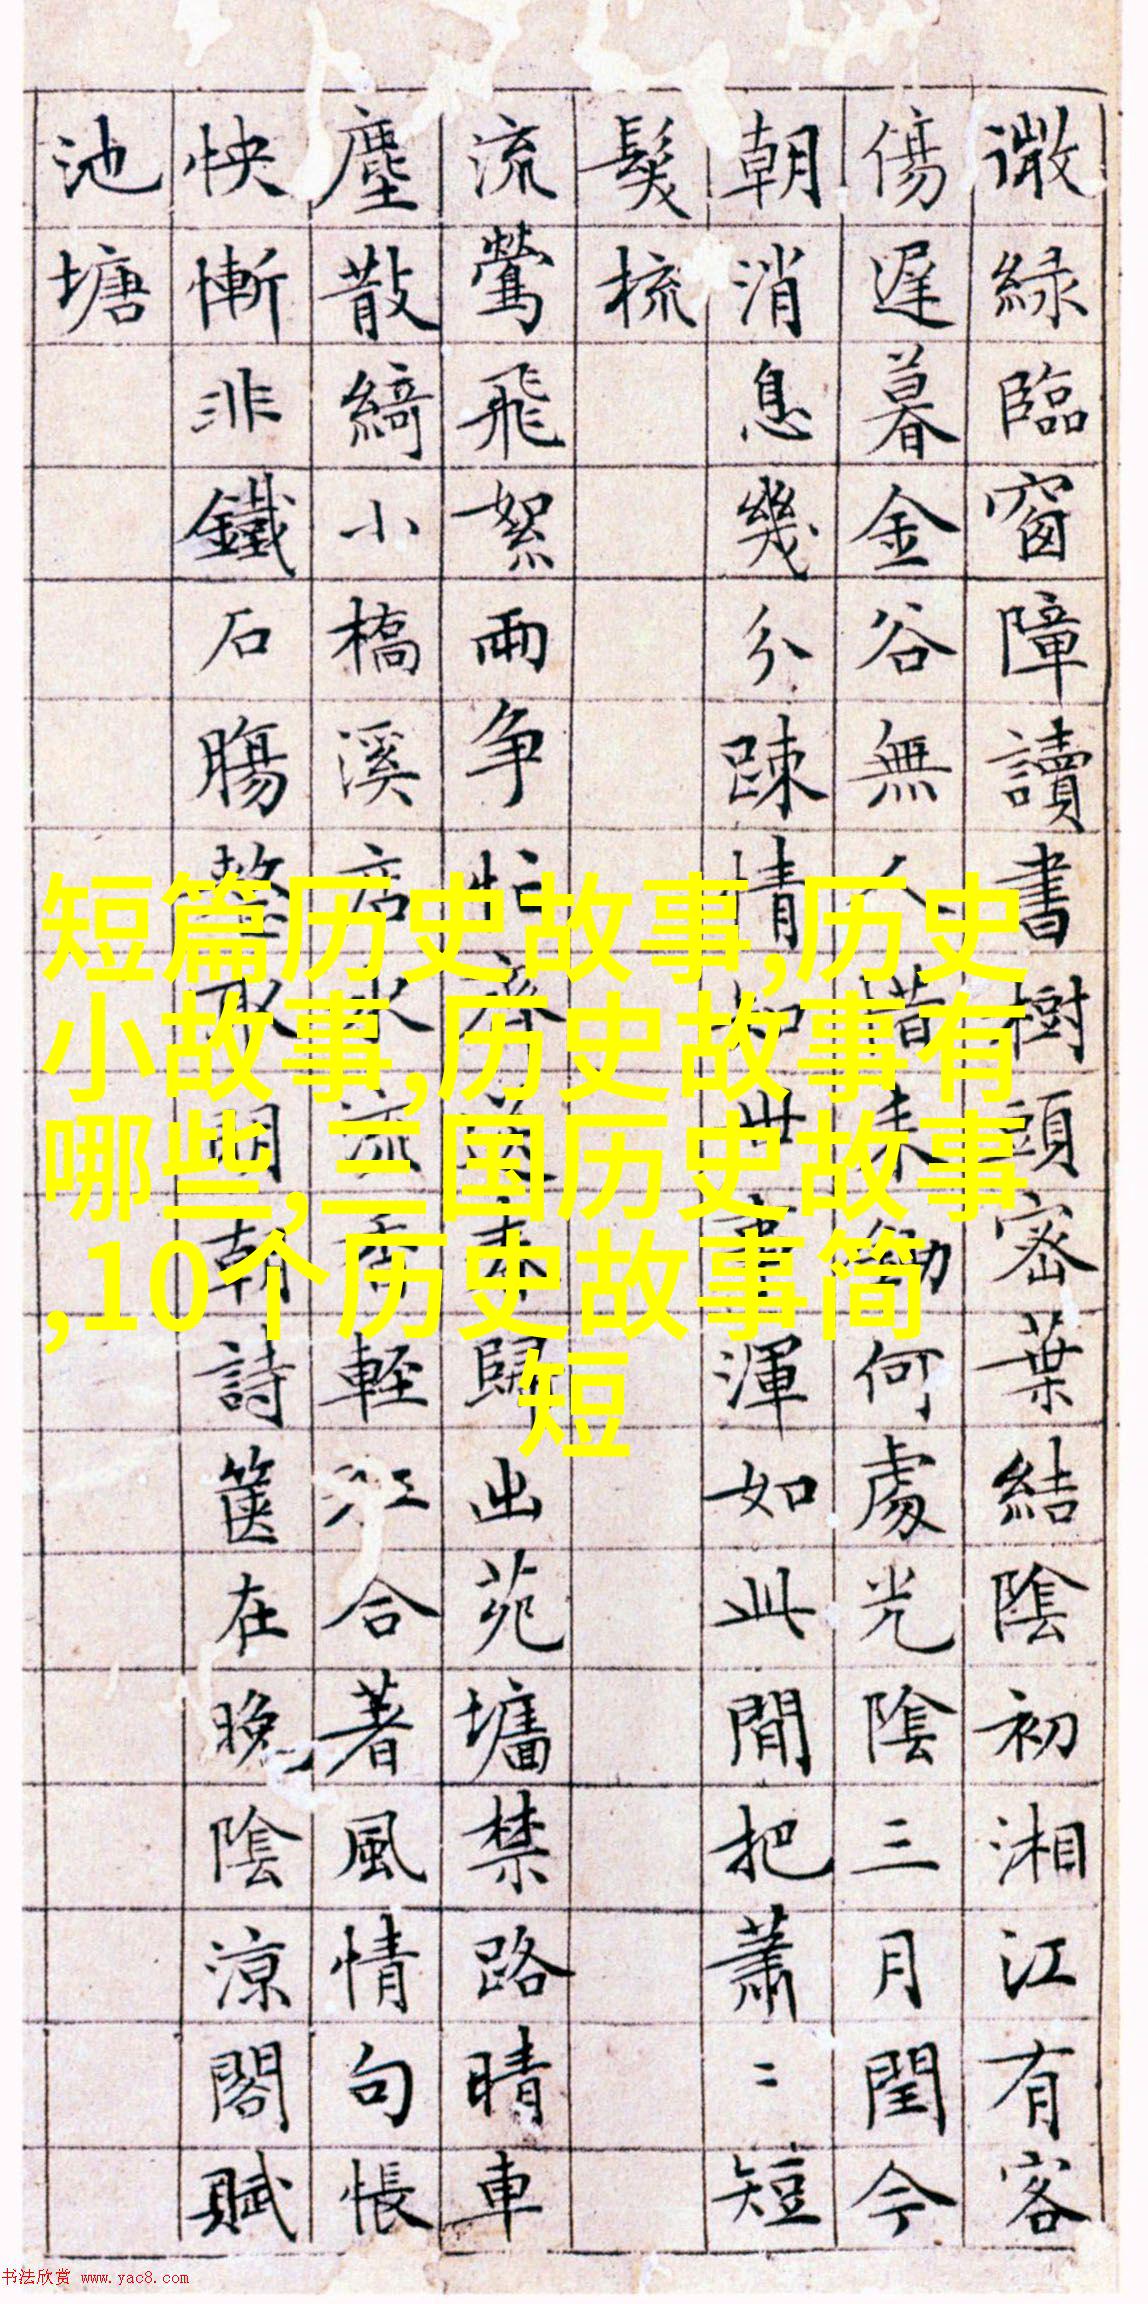 微綠臨窗障讀書樹頭密葉結陰初湘江有客
傷遲暮金谷無人惜未何處光陰三月閏今
朝消息幾分踈情知世事渾如此間把蕭〻短
鬓梳
流鶯飛絮兩爭忙齊送春歸出苑墻禁路晴車
塵散綺小橋溪店水流香輕江合著風情句悵
怏慚非鐵石腸取閑朝詩篋在晚陰涼閣賦
池塘
短篇历史故事,历史
小故事,历史故事有
哪些,三国历史故事
,10个历史故事简
短
书法欣赏 www.yac8.com